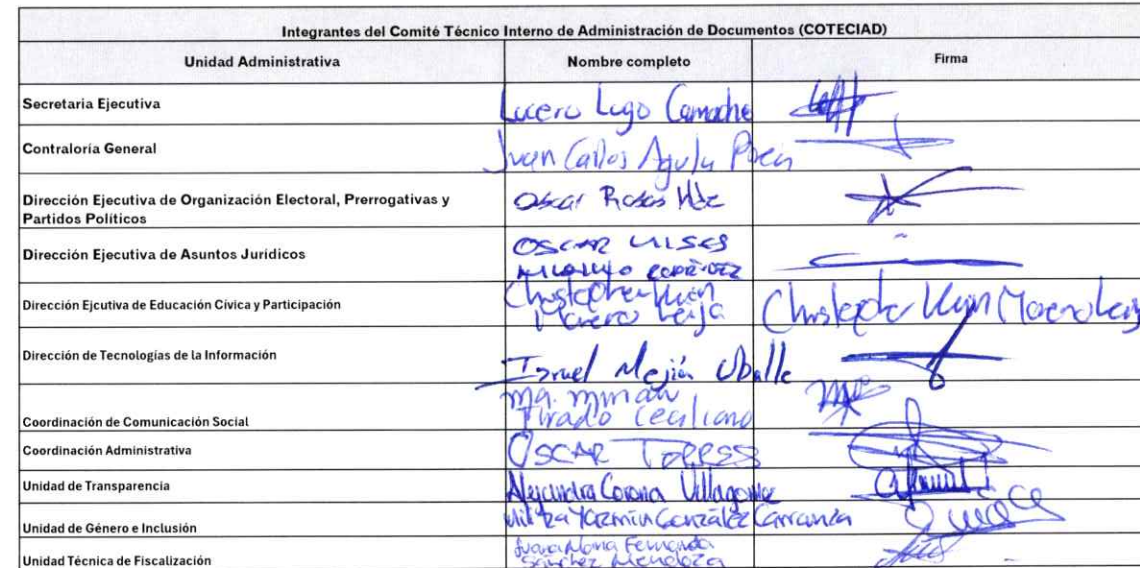 Integrantes del Comité Técnico Interno de Administración de Documentos (COTECIAD)
Unidad Administrativa Nombre completo Firma
Secretaria Ejecutiva Lucero Lugo Camacho
Contraloría General Juan Carlos
Dirección Ejecutiva de Organización Electoral, Prerrogativas y
Partidos Políticos
Oscar Rosas Hdz
Dirección Ejecutiva de Asuntos Jurídicos
OSCAR ULISES
Dirección Ejcutiva de Educación Cívica y Participación
Christopher
Moreno Leija
Christopher Moreno
Dirección de Tecnologías de la Información Israel Mejía Uballe
Coordinación de Comunicación Social
Ma. Miriam
Tirado Ceciliano
Coordinación Administrativa OSCAR TORRES
Unidad de Transparencia Alejandra Corona Villagómez
Unidad de Género e Inclusión Yazmín González Carranza
Unidad Técnica de Fiscalización
Juana María Fernanda
Sánchez Mendoza